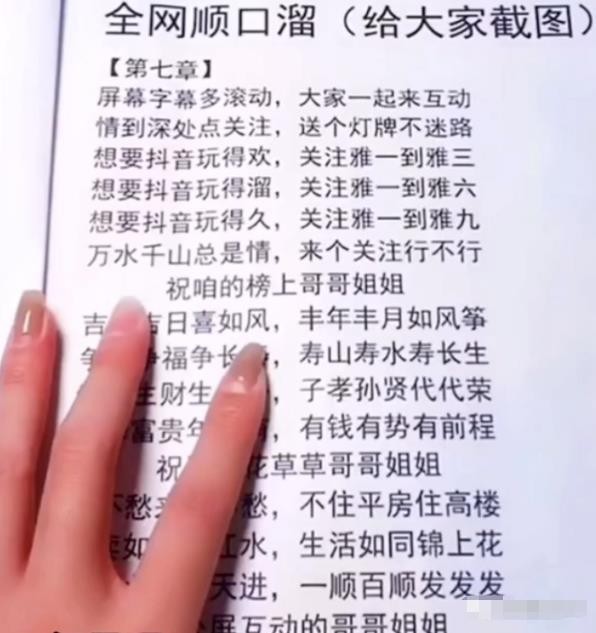 全网顺口溜（给大家截图）
【第七章】
屏幕字幕多滚动，大家一起来互动
情到深处点关注，送个灯牌不迷路
想要抖音玩得欢，关注雅一到雅三
想要抖音玩得溜，关注雅一到雅六
想要抖音玩得久，关注雅一到雅九
万水千山总是情，来个关注行不行
祝咱的榜上哥哥姐姐
吉 吉日喜如风，丰年丰月如风筝
争福争长 ，寿山寿水寿长生
生财生 ，子孝孙贤代代荣
富贵年 ，有钱有势有前程
祝 花草草哥哥姐姐
不愁 愁，不住平房住高楼
如 江水，生活如同锦上花
天进，一顺百顺发发发
屏互动的哥哥姐姐